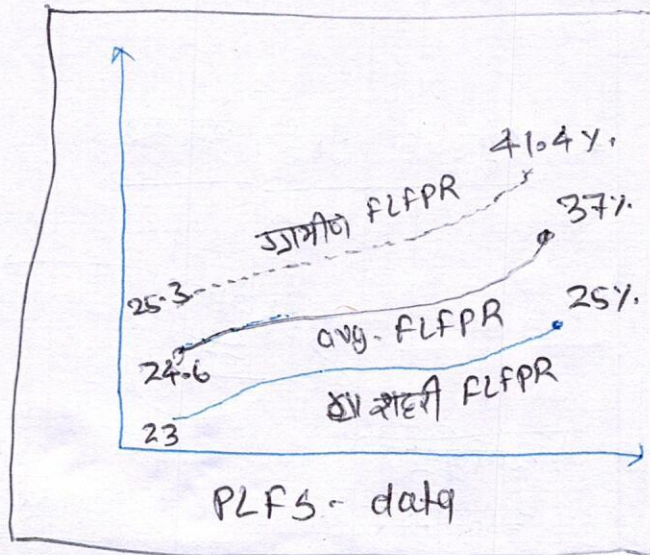 41.4%.
ग्रामीण FLFPR
37%.
25.3
avg. FLFPR
25%.
24.6
शहरी FLFPR
23
PLFS - data